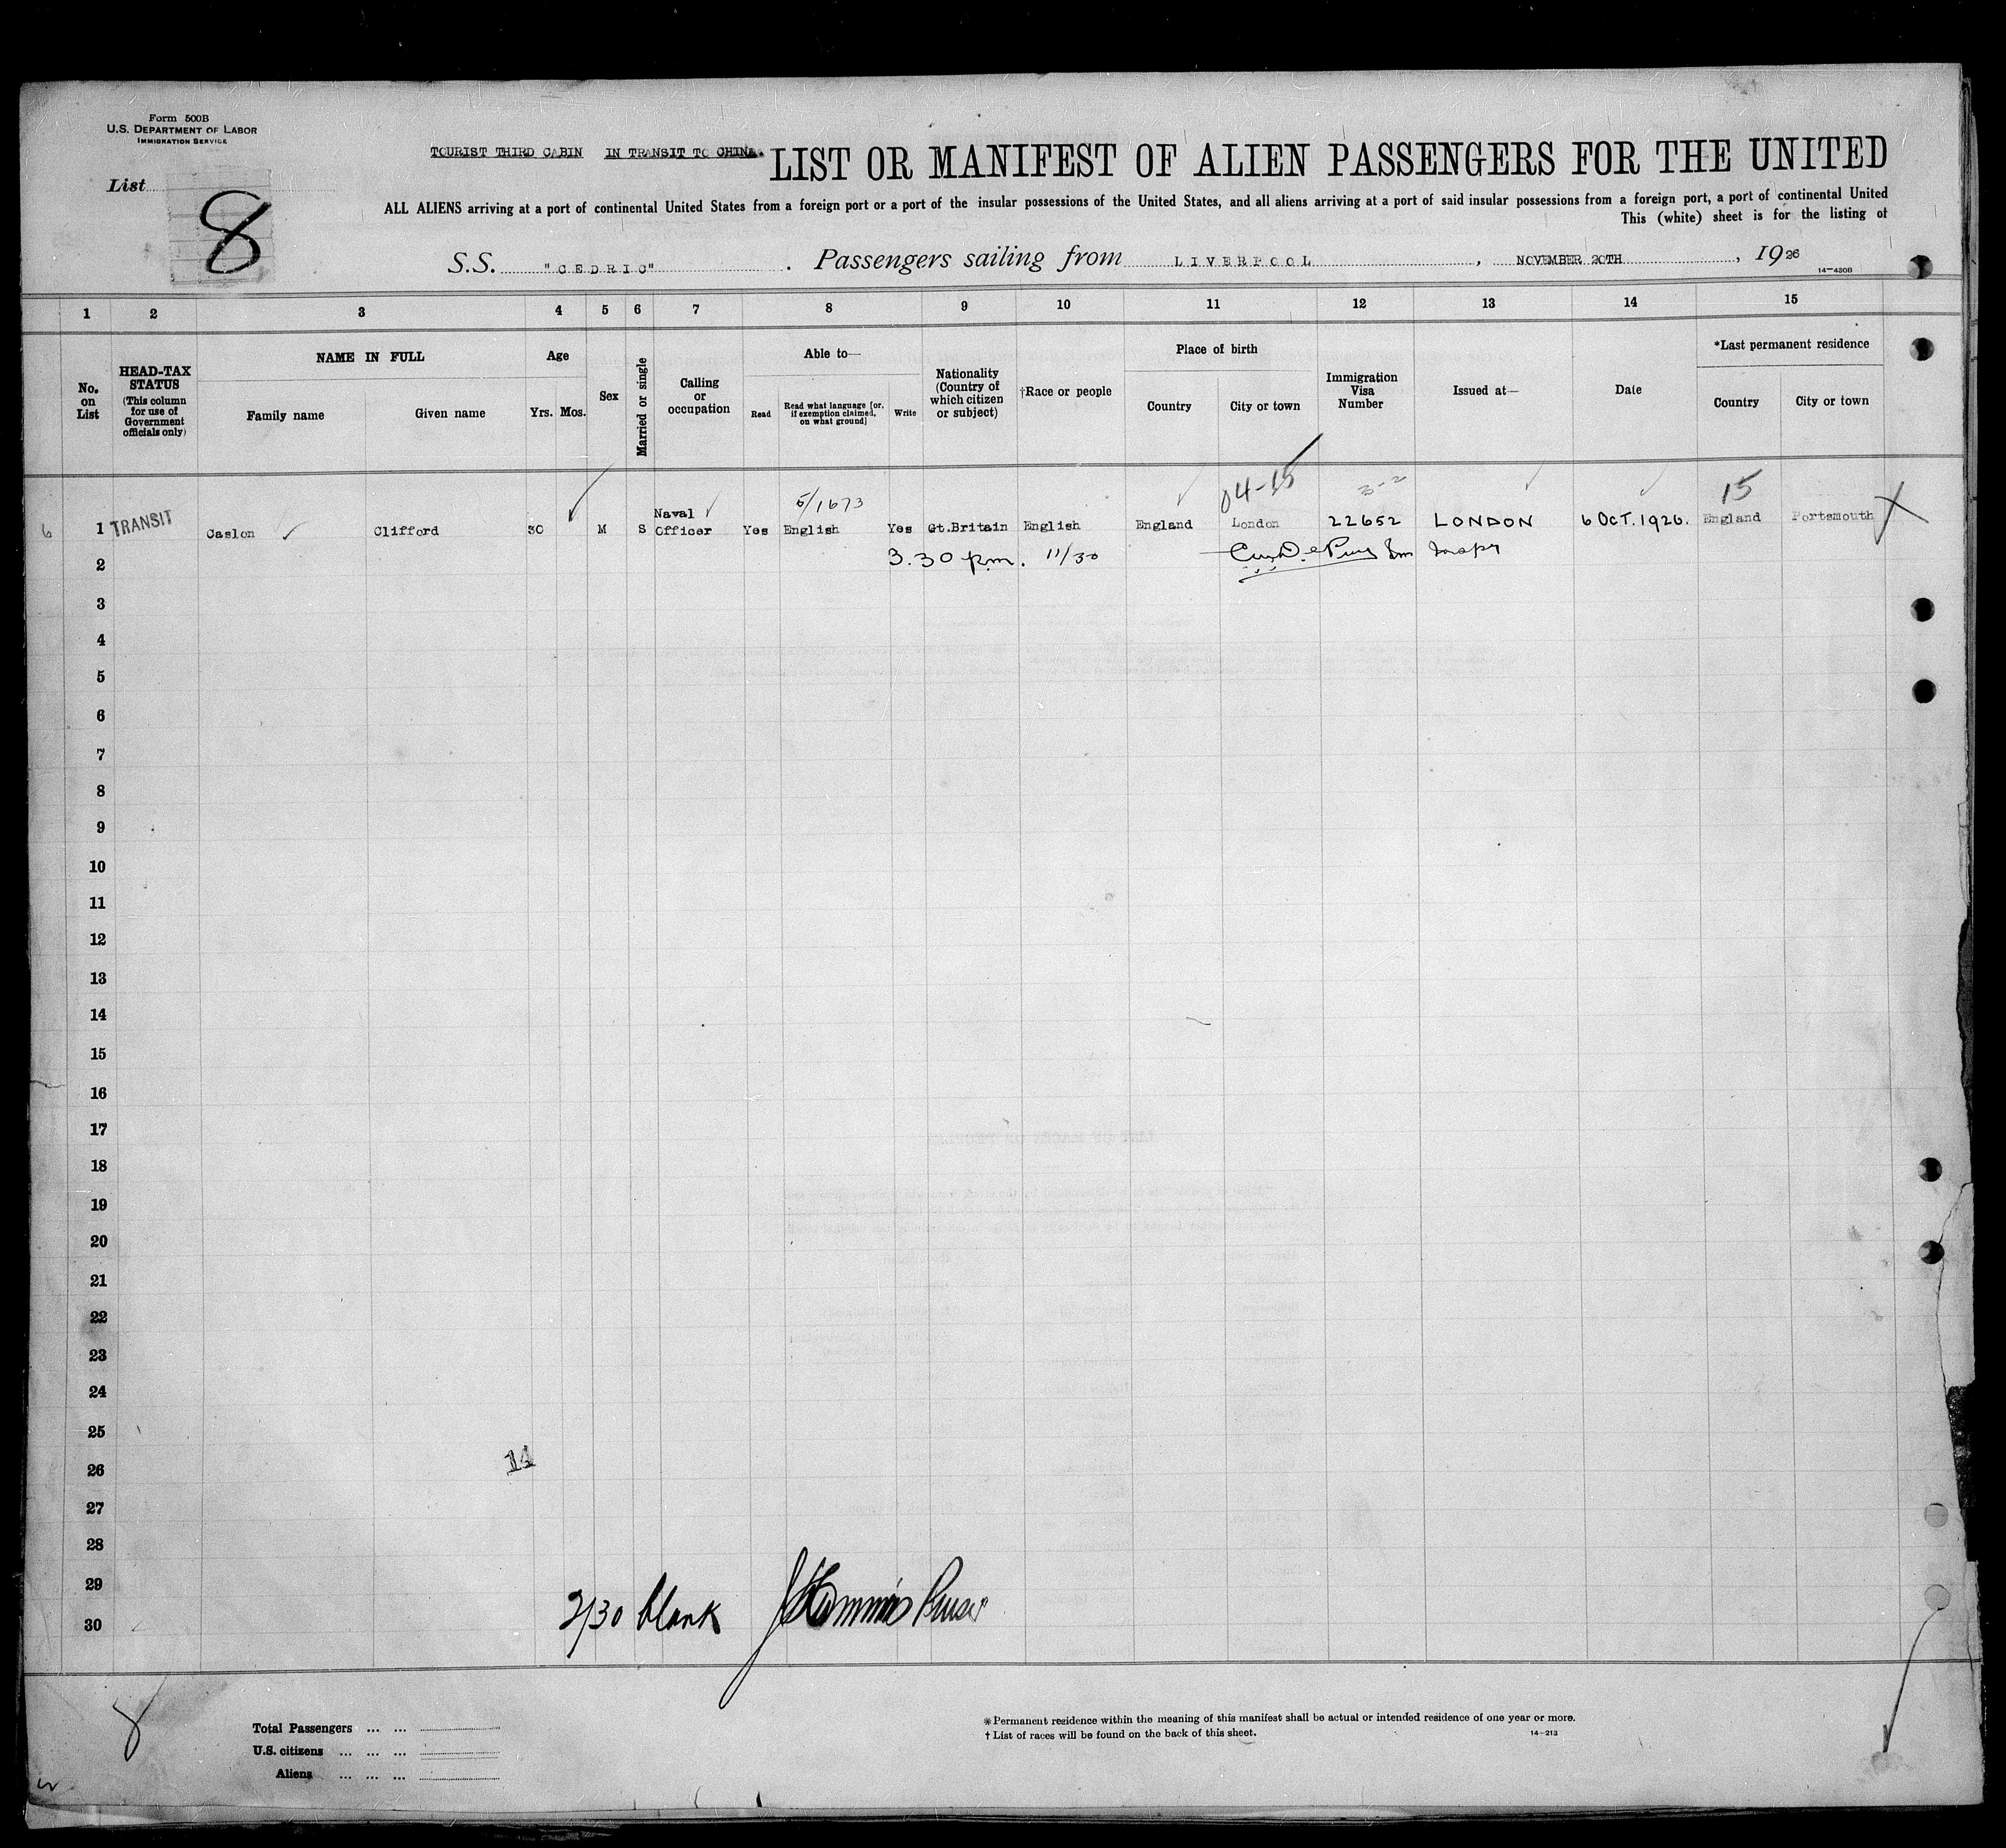 Form 500B
U.S. DEPARTMENT OF LABOR
IMMIGRATION SERVICE
List 8
TOURIST THIRD CABIN IN TRANSIT TO CHINA.
LIST OR MANIFEST OF ALIEN PASSENGERS FOR THE UNITED
ALL ALIENS arriving at a port of continental United States from a foreign port or a port of the insular possessions of the United States, and all aliens arriving at a port of said insular possessions from a foreign port, a port of continental United
This (white) sheet is for the listing of
S.S. "CEDRIC" . Passengers sailing from LIVERPOOL , NOVEMBER 20TH , 1926
14-430B
1 2 3 4 5 6 7 8 9 10 11 12 13 14 15
No. on List
HEAD-TAX STATUS (This column for use of Government officials only)
NAME IN FULL
Family name
Given name
Age
Yrs. Mos.
Sex
Married or single
Calling or occupation
Able to—
Read
Read what language [or, if exemption claimed, on what ground]
Write
Nationality (Country of which citizen or subject)
†Race or people
Place of birth
Country
City or town
Immigration Visa Number
Issued at—
Date
*Last permanent residence
Country
City or town
5/1673 04-15 3-2 15
6 1 TRANSIT Caslon Clifford 30 M S Naval Officer Yes English Yes Gt.Britain English England London 22652 LONDON 6 OCT. 1926. England Portsmouth X
2 3.30 p.m. 11/30
3
4
5
6
7
8
9
10
11
12
13
14
15
16
17
18
19
20
21
22
23
24
25
26 14
27
28
29
30 2/30 blank Purser
8
Total Passengers ... ...
U.S. citizens ... ... ...
Aliens ... ... ...
*Permanent residence within the meaning of this manifest shall be actual or intended residence of one year or more.
† List of races will be found on the back of this sheet.
14-213